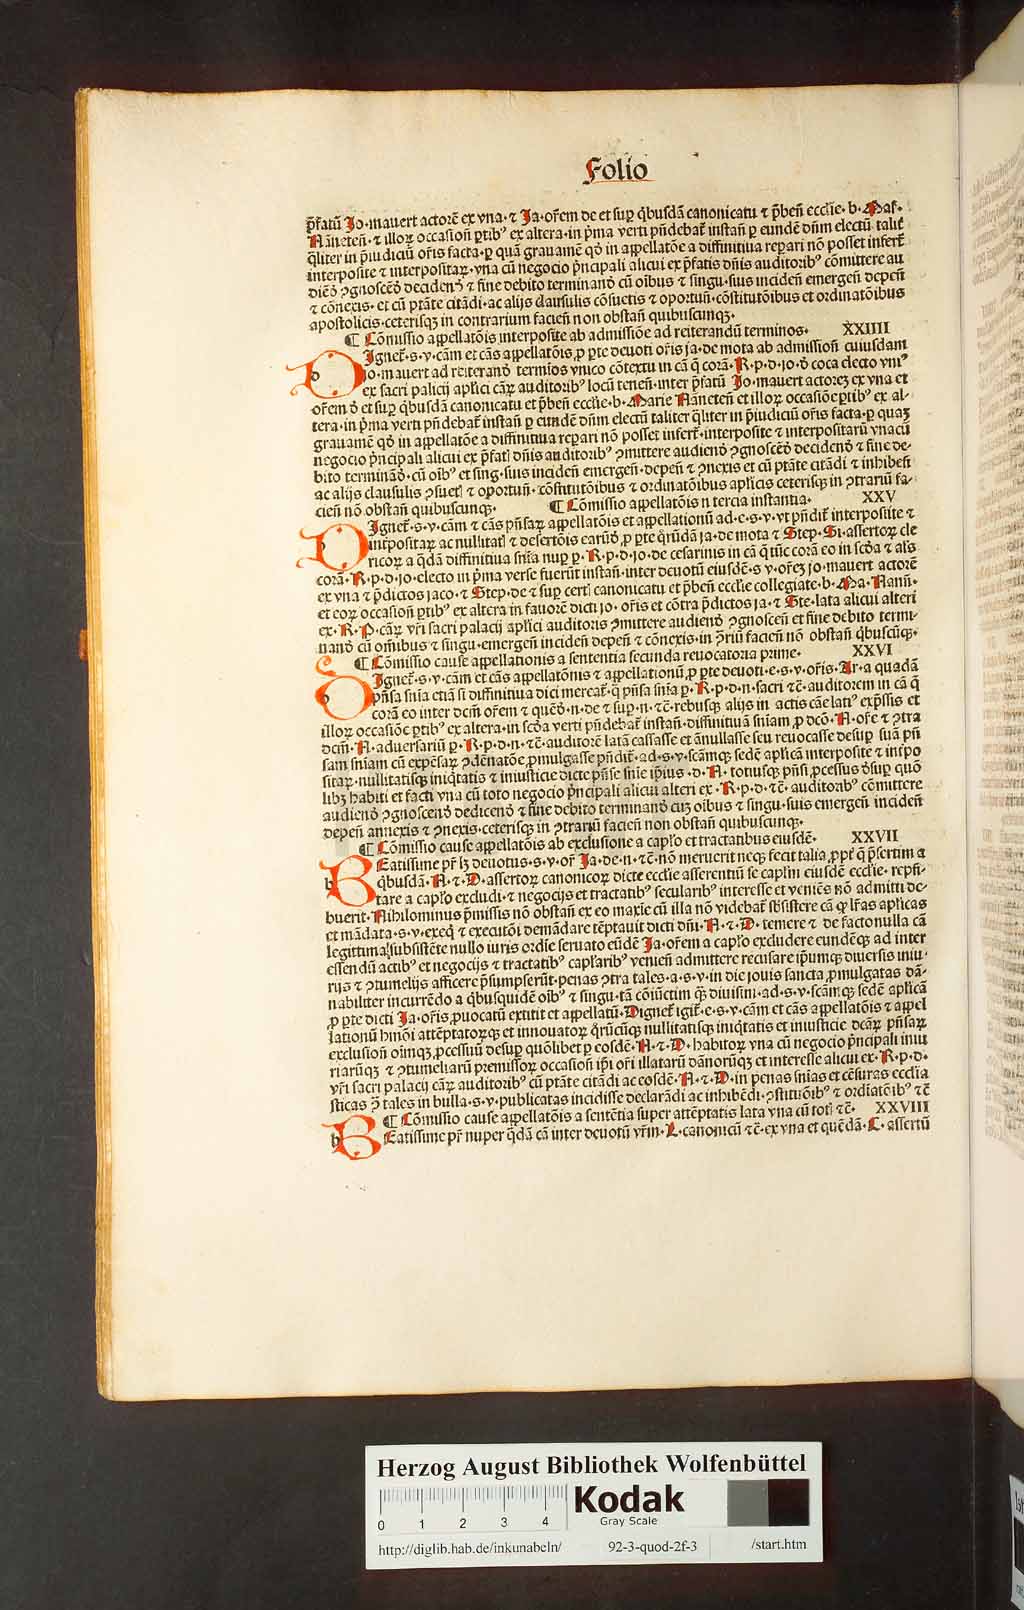 Folio
p̄fatū Jo·mauert actorē ex vna·⁊ Ja·or̄em de et suꝑ q̄busdā canonicatu ⁊ p̄ben̄ eccl̄ie·b·Mar̄·
Nāneten̄·⁊ illoꝝ occasion̄ ꝑtibꝰ ex altera·in p̄ma verti pn̄debat̄ instan̄ ꝑ eundē dn̄m electū talit̄
q̄liter in p̄iudiciū or̄is facta·ꝑ quā grauamē qd̄ in appellatōe a diffinitiua repari nō posset infert̄
interposite ⁊ interpositaꝝ·vna cū negocio p̄ncipali alicui ex p̄fatis dn̄is auditoribꝰ cōmittere au
diēd̄ ꝯgnoscēd̄ decidend̄ ⁊ fine debito terminand̄ cū oībus ⁊ singu·suis inciden̄ emergen̄ depen̄
⁊ cōnexis·et cū ptāte citādi·ac alijs clausulis cōsuetis ⁊ oportun̄·cōstitutōibus et ordinatōibus
apostolicis·ceterisqꝫ in contrarium facien̄ non obstan̄ quibuscunqꝫ·
¶ Cōmissio appellatōis interposite ab admissiōe ad reiterandū terminos· XXIIII
DIgnet̄·s·v·cām et cās appellatōis ꝓ ꝑte deuoti or̄is ja·de mota ab admission̄ cuiusdam
jo·mauert ad reiterand̄ termios vnico cōtextu in cā q̄ corā·R·p·d·jo·d̄ coca electo vniꝰ
ex sacri palicij apl̄ici cāꝝ auditoribꝰ locū tenen̄·inter p̄fatū Jo·mauert actoreꝫ ex vna et
or̄em d̄ et suꝑ q̄busdā canonicatu et p̄ben̄ eccl̄ie·b·Marie Nāneten̄ et illoꝝ occasiōe ꝑtibꝰ ex al-
tera·in p̄ma verti pn̄debat̄ instan̄ ꝑ eundē dn̄m electū taliter q̄liter in p̄iudiciū or̄is facta·ꝑ quaꝫ
grauamē qd̄ in appellatōe a diffinitiua repari non posset infert̄·interposite ⁊ interpositarū vnacū
negocio p̄ncipali alicui ex p̄fatꝭ dn̄is auditoribꝰ ꝯmittere audiend̄ ꝯgnoscēd̄ decidend̄ ⁊ fine de-
bito terminād̄·cū oībꝰ et sing·suis inciden̄ emergen̄·depen̄ ⁊ ꝯnexis et cū ptāte citādi ⁊ inhiben̄
ac alijs clausulis ꝯsuetꝭ ⁊ oportun̄·cōstitutōibus ⁊ ordinatōibus apl̄icis ceterisqꝫ in ꝯtrariū fa-
cien̄ nō obstan̄ quibuscunqꝫ· ¶ Cōmissio appellatōis n tercia instantia· XXV
DIgnet̄·s·v·cām ⁊ cās pn̄saꝝ appellatōis et appellationū ad·e·s·v·vt pn̄dit̄ interposite ⁊
int̄positaꝝ ac nullitatꝭ ⁊ desertōis earūd̄ ꝓ ꝑte q̄rūdā ja·de mota ⁊ Step·Si·assertoꝝ cle
ricoꝝ a q̄dā diffinitiua sn̄ia nuꝑ ꝑ·R·p·d·jo·de cesarinis in cā q̄ tūc corā eo in scd̄a ⁊ al̄s
corā·R·p·d·jo·electo in p̄ma verse fuerūt instan̄·inter deuotū eiusdē·s·v·or̄eꝫ jo·mauert actorē
ex vna ⁊ p̄dictos jaco·⁊ Step·de ⁊ suꝑ certꝭ canonicatu et p̄ben̄ eccl̄ie collegiate·b·Ma·Nann̄·
et eoꝝ occasion̄ ꝑtibꝰ ex altera in fauorē dicti jo·or̄is et cōtra p̄dictos ja·⁊ Ste·lata alicui alteri
ex·R·P·cāꝝ vr̄i sacri palacij apl̄ici auditoris ꝯmittere audiend̄ ꝯgnoscen̄ et fine debito termi-
nand̄ cū om̄ibus ⁊ singu·emergen̄ inciden̄ depen̄ ⁊ cōnexis·in ꝯriū facien̄ nō obstan̄ q̄buscūqꝫ·
¶ Cōmissio cause appellationis a sententia secunda reuocatoria prime· XXVI
DIgnet̄·s·v·cām et cās appellatōnis ⁊ appellationū ꝓ ꝑte deuoti·e·s·v·or̄is·Ar·a quadā
p̄nsa sn̄ia etiā si diffinitiua dici mereat̄·q̄ pn̄sa sn̄ia ꝑ·R·p·d·n·sacri ⁊c̄·auditorem in cā q̄
corā eo inter dcm̄ or̄em ⁊ quēd̄·n·de ⁊ suꝑ·n·⁊c̄·rebusqꝫ alijs in actis cāe latiꝰ exp̄ssis et
illoꝝ occasiōe ꝑtibꝰ ex altera·in scd̄a verti pn̄debat̄ instan̄·diffinitiuā sn̄iam ꝓ dcō·N·or̄e ⁊ ꝯtra
dcm̄·N·aduersariū ꝑ·R·p·d·n·⁊c̄·auditorē latā cassasse et ānullasse seu reuocasse desuꝑ suā pn̄
sam sn̄iam cū expēsaꝝ ꝯdēnatōe ꝓmulgasse pn̄dit̄·ad·s·v·scāmqꝫ sedē apl̄icā interposite ⁊ int̄po
sitaꝝ·nullitatisqꝫ iniq̄tatis ⁊ iniusticie dicte pn̄se sn̄ie ip̄ius·d·N·totiusqꝫ pn̄si ꝓcessus d̄suꝑ quō
libꝫ habiti et facti vna cū toto negocio p̄ncipali alicui alteri ex·R·p·d·⁊c̄·auditoribꝰ cōmittere
audiend̄ ꝯgnoscend̄ dedicend̄ ⁊ fine debito terminand̄ cuꝫ oibus ⁊ singu·suis emergen̄ inciden̄
depen̄ annexis ⁊ ꝯnexis·ceterisqꝫ in ꝯtrariū facien̄ non obstan̄ quibuscunqꝫ·
¶ Cōmissio cause appellatōis ab exclusione a capl̄o et tractatibus eiusdē· XXVII
BEatissime pr̄ lꝫ deuotus·s·v·or̄ Ja·de·n·⁊c̄·nō meruerit neqꝫ fecit talia ꝓpt̄ q̄ p̄sertim a
q̄busdā·N·⁊·D·assertoꝝ canonicoꝝ dicte eccl̄ie asserentiū se capl̄m eiusdē eccl̄ie·rep̄si-
tare a capl̄o excludi·⁊ negocijs et tractatibꝰ secularibꝰ interesse et veniēs nō admitti de-
buerit·Nihilominus p̄missis nō obstan̄ ex eo maxīe cū illa nō videbat̄ sb̄sistere cā ꝙ lr̄as apl̄icas
et mādata·s·v·exeq̄ ⁊ executōi demādare tēptauit dicti dn̄i·N·⁊·D·temere ⁊ de facto nulla cā
legittima subsistēte nullo iuris ordīe seruato eūdē Ja·or̄em a capl̄o excludere eundēqꝫ ad inter
essendū actibꝰ et negocijs ⁊ tractatibꝰ capl̄aribꝰ venien̄ admittere recusare ip̄umqꝫ diuersis iniu-
rijs ⁊ ꝯtumelijs afficere p̄sumpserūt·penas ꝯtra tales·a·s·v·in die jouis sancta ꝓmulgatas dā-
nabiliter incurrēdo a q̄busquidē oībꝰ ⁊ singu·tā cōiūctim qꝫ diuisim·ad·s·v·scāmqꝫ sedē apl̄icā
ꝓ ꝑte dicti Ja·or̄is ꝓuocatū extitit et appellatū·Dignet̄ igit̄·e·s·v·cām et cās appellatōis ⁊ appel
lationū hmōi attēptatoꝝqꝫ et innouatoꝝ q̄rūcūqꝫ nullitatisqꝫ iniq̄tatis et iniusticie dcāꝝ pn̄saꝝ
exclusion̄ oīmqꝫ ꝓcessiuū desuꝑ quōlibet ꝑ eosdē·N·⁊·D·habitoꝝ vna cū negocio p̄ncipali iniu
riarūqꝫ ⁊ ꝯtumeliarū premissoꝝ occasion̄ ip̄i or̄i illatarū dānorūqꝫ et interesse alicui ex·R·p·d·
vr̄i sacri palacij cāꝝ auditoribꝰ cū ptāte citādi ac eosdē·N·⁊·D·in penas sn̄ias et cēsuras eccl̄ia
sticas ꝯ̄ tales in bulla·s·v·publicatas incidisse declarādi ac inhibēdi·ꝯstituōibꝰ ⁊ ordiatōibꝰ ⁊c̄
¶ Cōmissio cause appellatōis a sentētia super attēptatis lata vna cū totꝭ ⁊c̄· XXVIII
BEatissime pr̄ nuper q̄dā cā inter deuotū vr̄m·L·canonicū ⁊c̄·ex vna et quēdā·C·assertū
Herzog August Bibliothek Wolfenbüttel
0 1 2 3 4
Kodak
Gray Scale
http://diglib.hab.de/inkunabeln/ 92-3-quod-2f-3 /start.htm